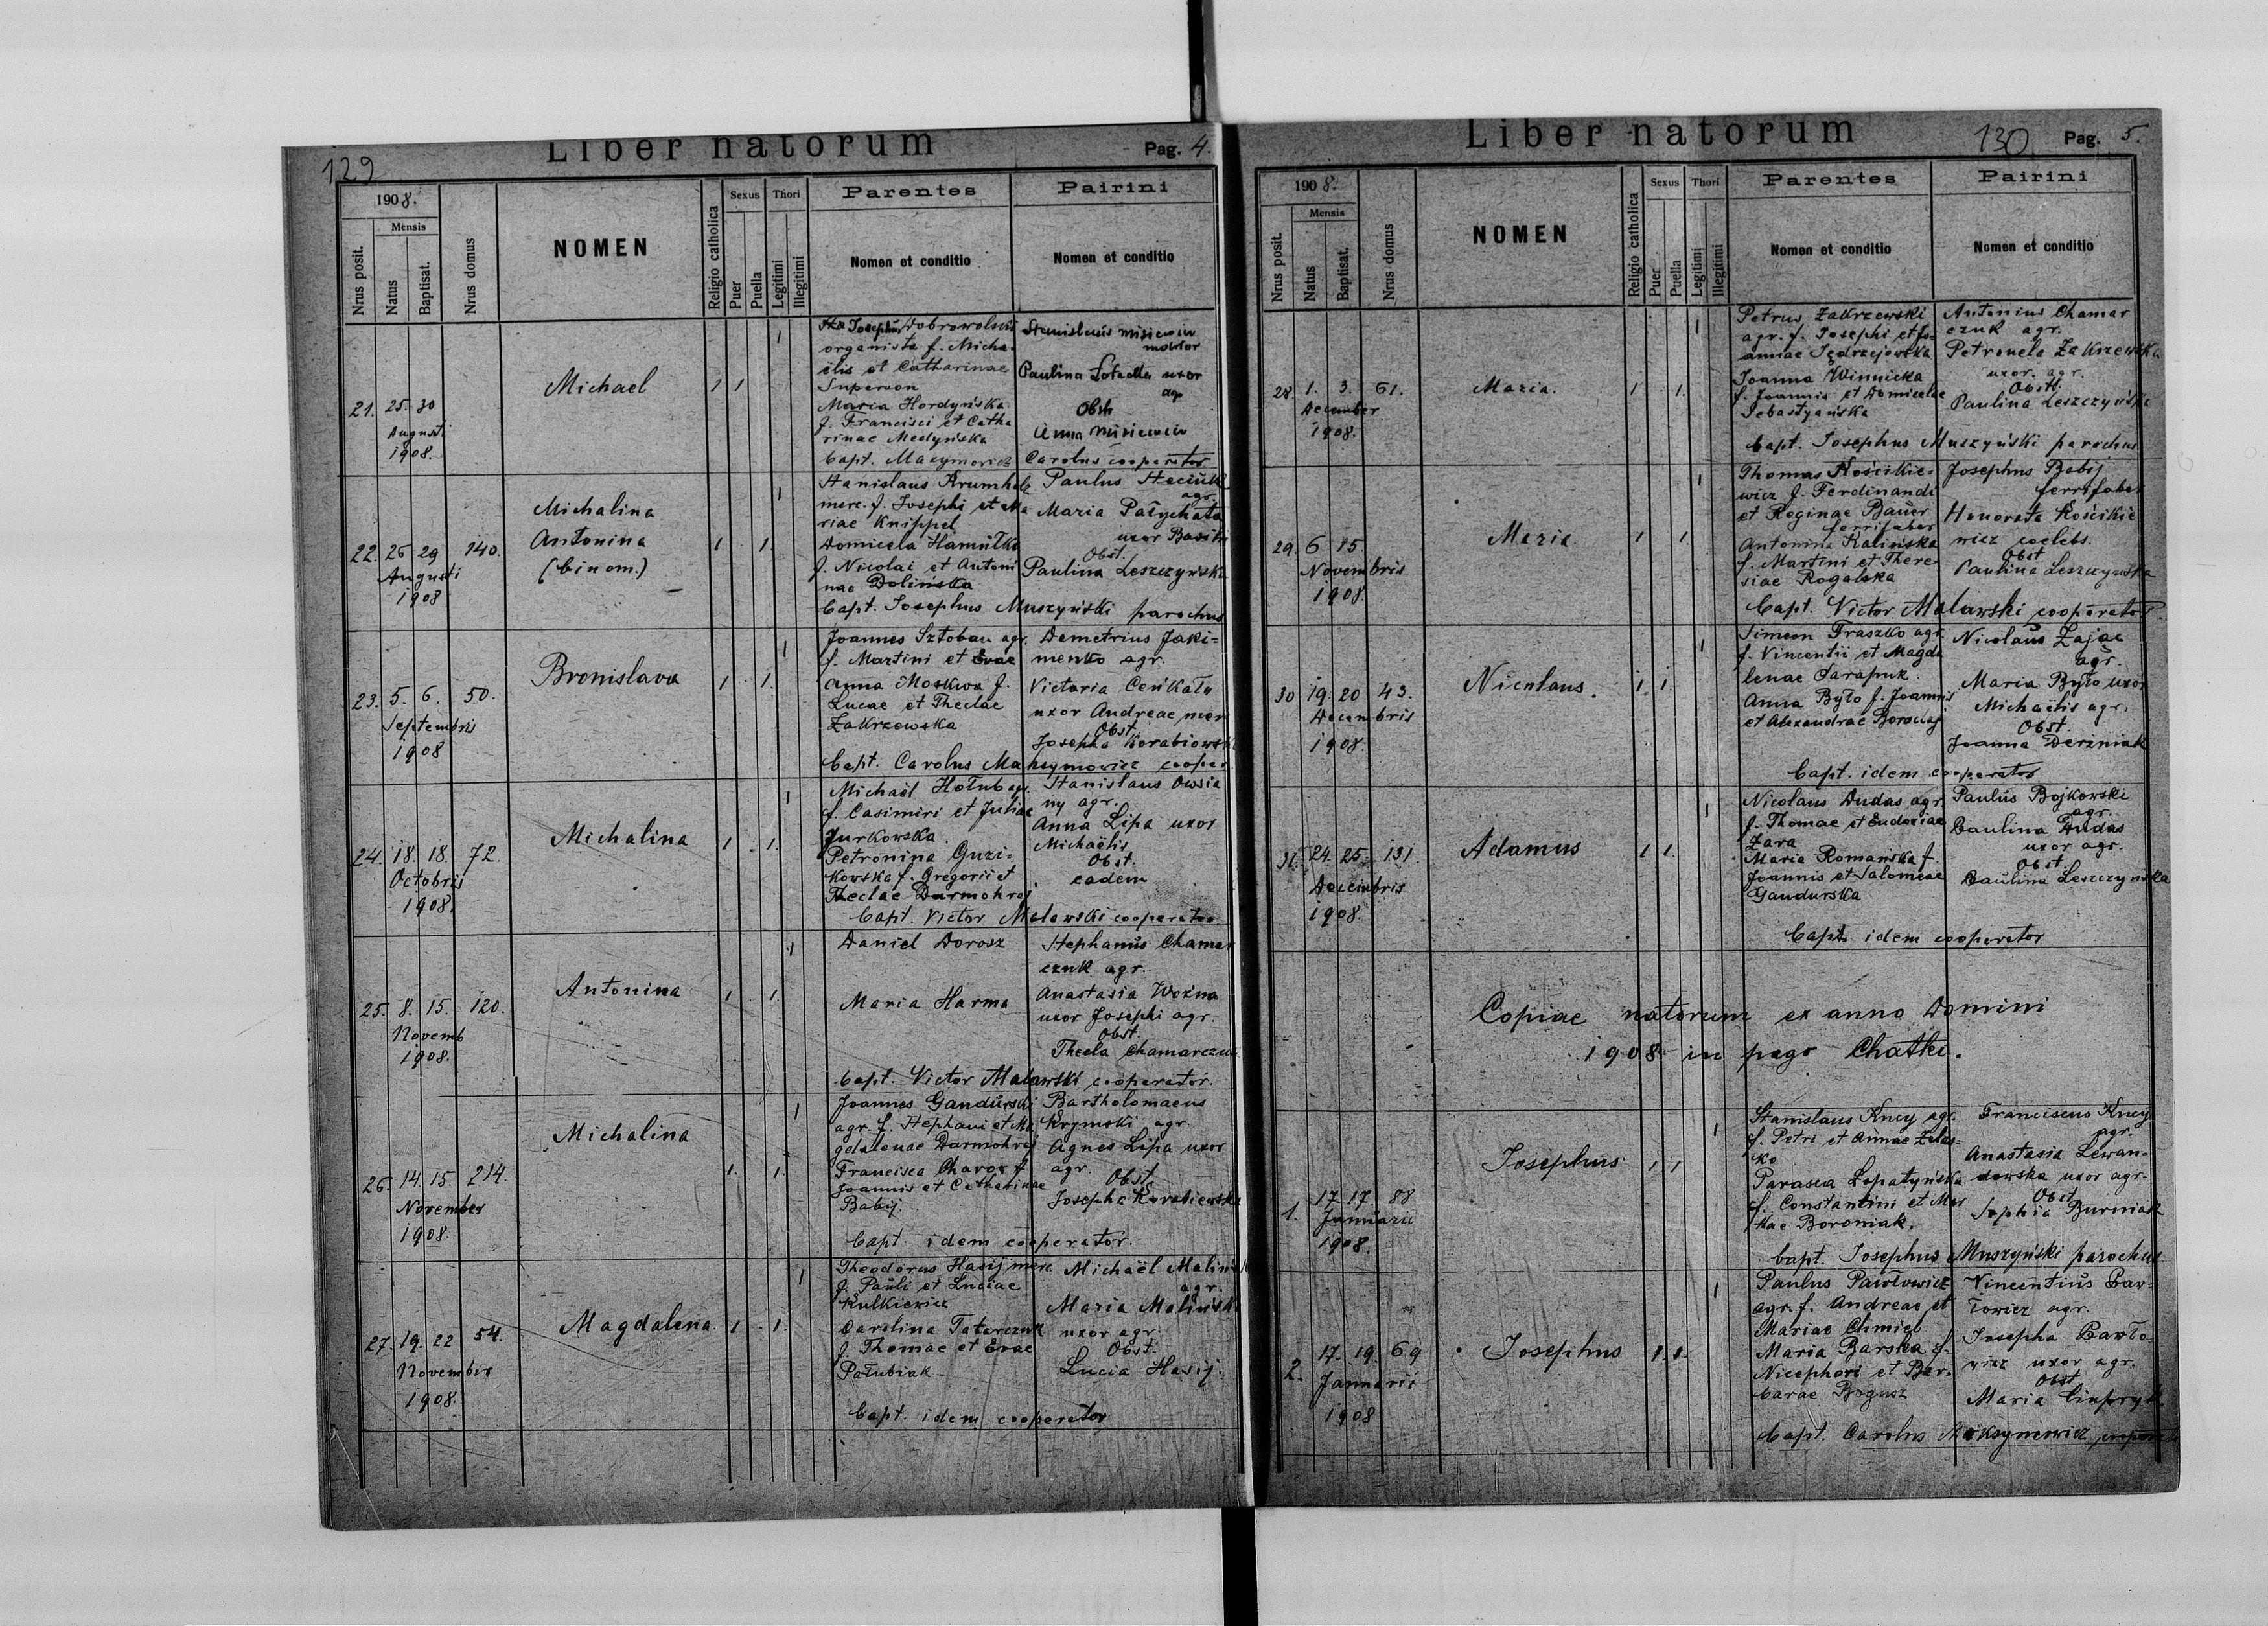 129
Liber natorum
Pag. 4.
1908.
Mensis
Nrus posit.
Natus
Baptisat.
Nrus domus
NOMEN
Religio catholica
Sexus
Puer
Puella
Thori
Legitimi
Illegitimi
Parentes
Nomen et conditio
Pairini
Nomen et conditio
21. 25. 30
Augusti
1908.
Michael
1 1 1
Josephus Dobrowolski
organista f. Micha-
elis et Catharinae
Superson
Maria Hordyńska
f. Francisci et Catha
rinae Medyńska
Stanislaus Misiewicz
Paulina uxor
agr
Obst
Anna Misiewicz
bapt. Carolus cooperator
22. 26 29 140.
Augusti
1908
Michalina
Antonina
(binom.)
1 1. 1
Stanislaus Krumholz
merc. f. Josephi et Ma
riae Knippel
Domicela Hamułka
f. Nicolai et Antoni
nae Dolińska
Paulus Steciuk
agr.
Maria
uxor
Obst.
Paulina Leszczyńska
bapt. Josephus Muszyński parochus
23. 5. 6. 50.
Septembris
1908
Bronislava
1 1. 1
Joannes Sztoban agr.
f. Martini et Evae
Anna Moskwa f.
Lucae et Theclae
Zakrzewska
Demetrius Jaki-
menko agr.
Victoria
uxor Andreae merc
Obst.
Josepha Korabiowska
bapt. Carolus Maksymowicz cooper
24. 18. 18. 72.
Octobris
1908.
Michalina
1 1. 1
Michaël Hołub agr.
f. Casimiri et Juliae
Jurkowska.
Petronina Guzi-
kowska f. Gregorii et
Theclae Darmohraj
Stanislaus Owsia
ny agr.
Anna Lipa uxor
Michaëlis
Obst.
eadem
bapt. Victor Malawski cooperator
25. 8. 15. 120.
Novemb
1908.
Antonina
1 1 1
Daniel Dorosz
Maria Harma
Stephanus Chamar
czuk agr.
Anastasia Woźna
uxor Josephi agr.
Obst.
Thecla Chamarczuk
bapt. Victor Malawski cooperator.
26. 14. 15. 214.
November
1908.
Michalina
1. 1. 1
Joannes Gandurski
agr. f. Stephani et Ma
gdalenae Darmohraj
Francisca f.
Joannis et Catharinae
Babij.
Bartholomaeus
Krymski agr.
Agnes Lipa uxor
agr.
Obst.
Josepha Korabiewska
bapt. idem cooperator.
27. 19. 22 54.
November
1908.
Magdalena.
1 1. 1
Theodorus Hasij merc
f. Pauli et Luciae
Kulkiewicz
Carolina Tatarczuk
f. Thomae et Evae
Pałubiak
Michaël Malinski
agr.
Maria Malinska
uxor agr.
Obst.
Lucia Hasij.
bapt. idem cooperator
Liber natorum
130
Pag. 5.
1908.
Mensis
Nrus posit.
Natus
Baptisat.
Nrus domus
NOMEN
Religio catholica
Sexus
Puer
Puella
Thori
Legitimi
Illegitimi
Parentes
Nomen et conditio
Pairini
Nomen et conditio
28. 1. 3. 61.
December
1908.
Maria.
1 1. 1
Petrus Zakrzewski
agr. f. Josephi et Jo-
annae Jędrzejowska
Joanna Winnicka
f. Joannis et Domicelae
Sebastyańska
Antonius Chamar
czuk agr.
Petronela Zakrzewska
uxor. agr.
Obst.
Paulina Leszczyńska
bapt. Josephus Muszyński parochus
29. 6 15
Novembris
1908.
Maria
1 1. 1
Thomas Kościkie-
wicz f. Ferdinandi
et Reginae Bauer
ferrifaber
Antonina Kalińska
f. Martini et There-
siae Rogalska
Josephus Babij
ferrifaber
Honorata Kościkie
wicz coelebs.
Obst
Paulina Leszczyńska
bapt. Victor Malawski cooperator
30 19. 20 43.
Decembris
1908.
Nicolaus.
1. 1. 1
Simeon Fraszko agr.
f. Vincentii et Magda
lenae Sarapuk.
Anna Było f. Joannis
et Alexandrae Borodaj
Nicolaus Zając
agr.
Maria Było uxor
Michaëlis agr.
Obst.
Joanna Derżniak
bapt. idem cooperator
31. 24. 25. 131.
Decembris
1908.
Adamus
1 1. 1
Nicolaus Dudas agr.
f. Thomae et Eudoxiae
Zara
Maria Romańska f.
Joannis et Salomeae
Gandurska
Paulus Bojkowski
agr.
Paulina Dudas
uxor agr.
Obst
Paulina Leszczynska
bapt. idem cooperator
Copiae natorum ex anno Domini
1908 in pago Chatki.
1. 17 17. 88
Januarii
1908.
Josephus
1 1 1
Stanislaus Kney agr.
f. Petri et Annae Żelas-
ko
Parasca Łopatyńska
f. Constantini et Mar
Boroniak.
Franciscus Kney
agr.
Anastasia Lewan-
dowska uxor agr.
Obst
Sophia Burniak
bapt. Josephus Muszyński parochus
2. 17. 19. 69
Januarii
1908
Josephus
1. 1. 1
Paulus Pawłowicz
agr. f. Andreae et
Mariae Chmiel
Maria Barska f.
Nicephori et Bar-
barae Bogusz
Vincentius Paw-
łowicz agr.
Josepha Pawło-
wicz uxor agr.
Obst
Maria
bapt. Carolus Maksymowicz cooperator